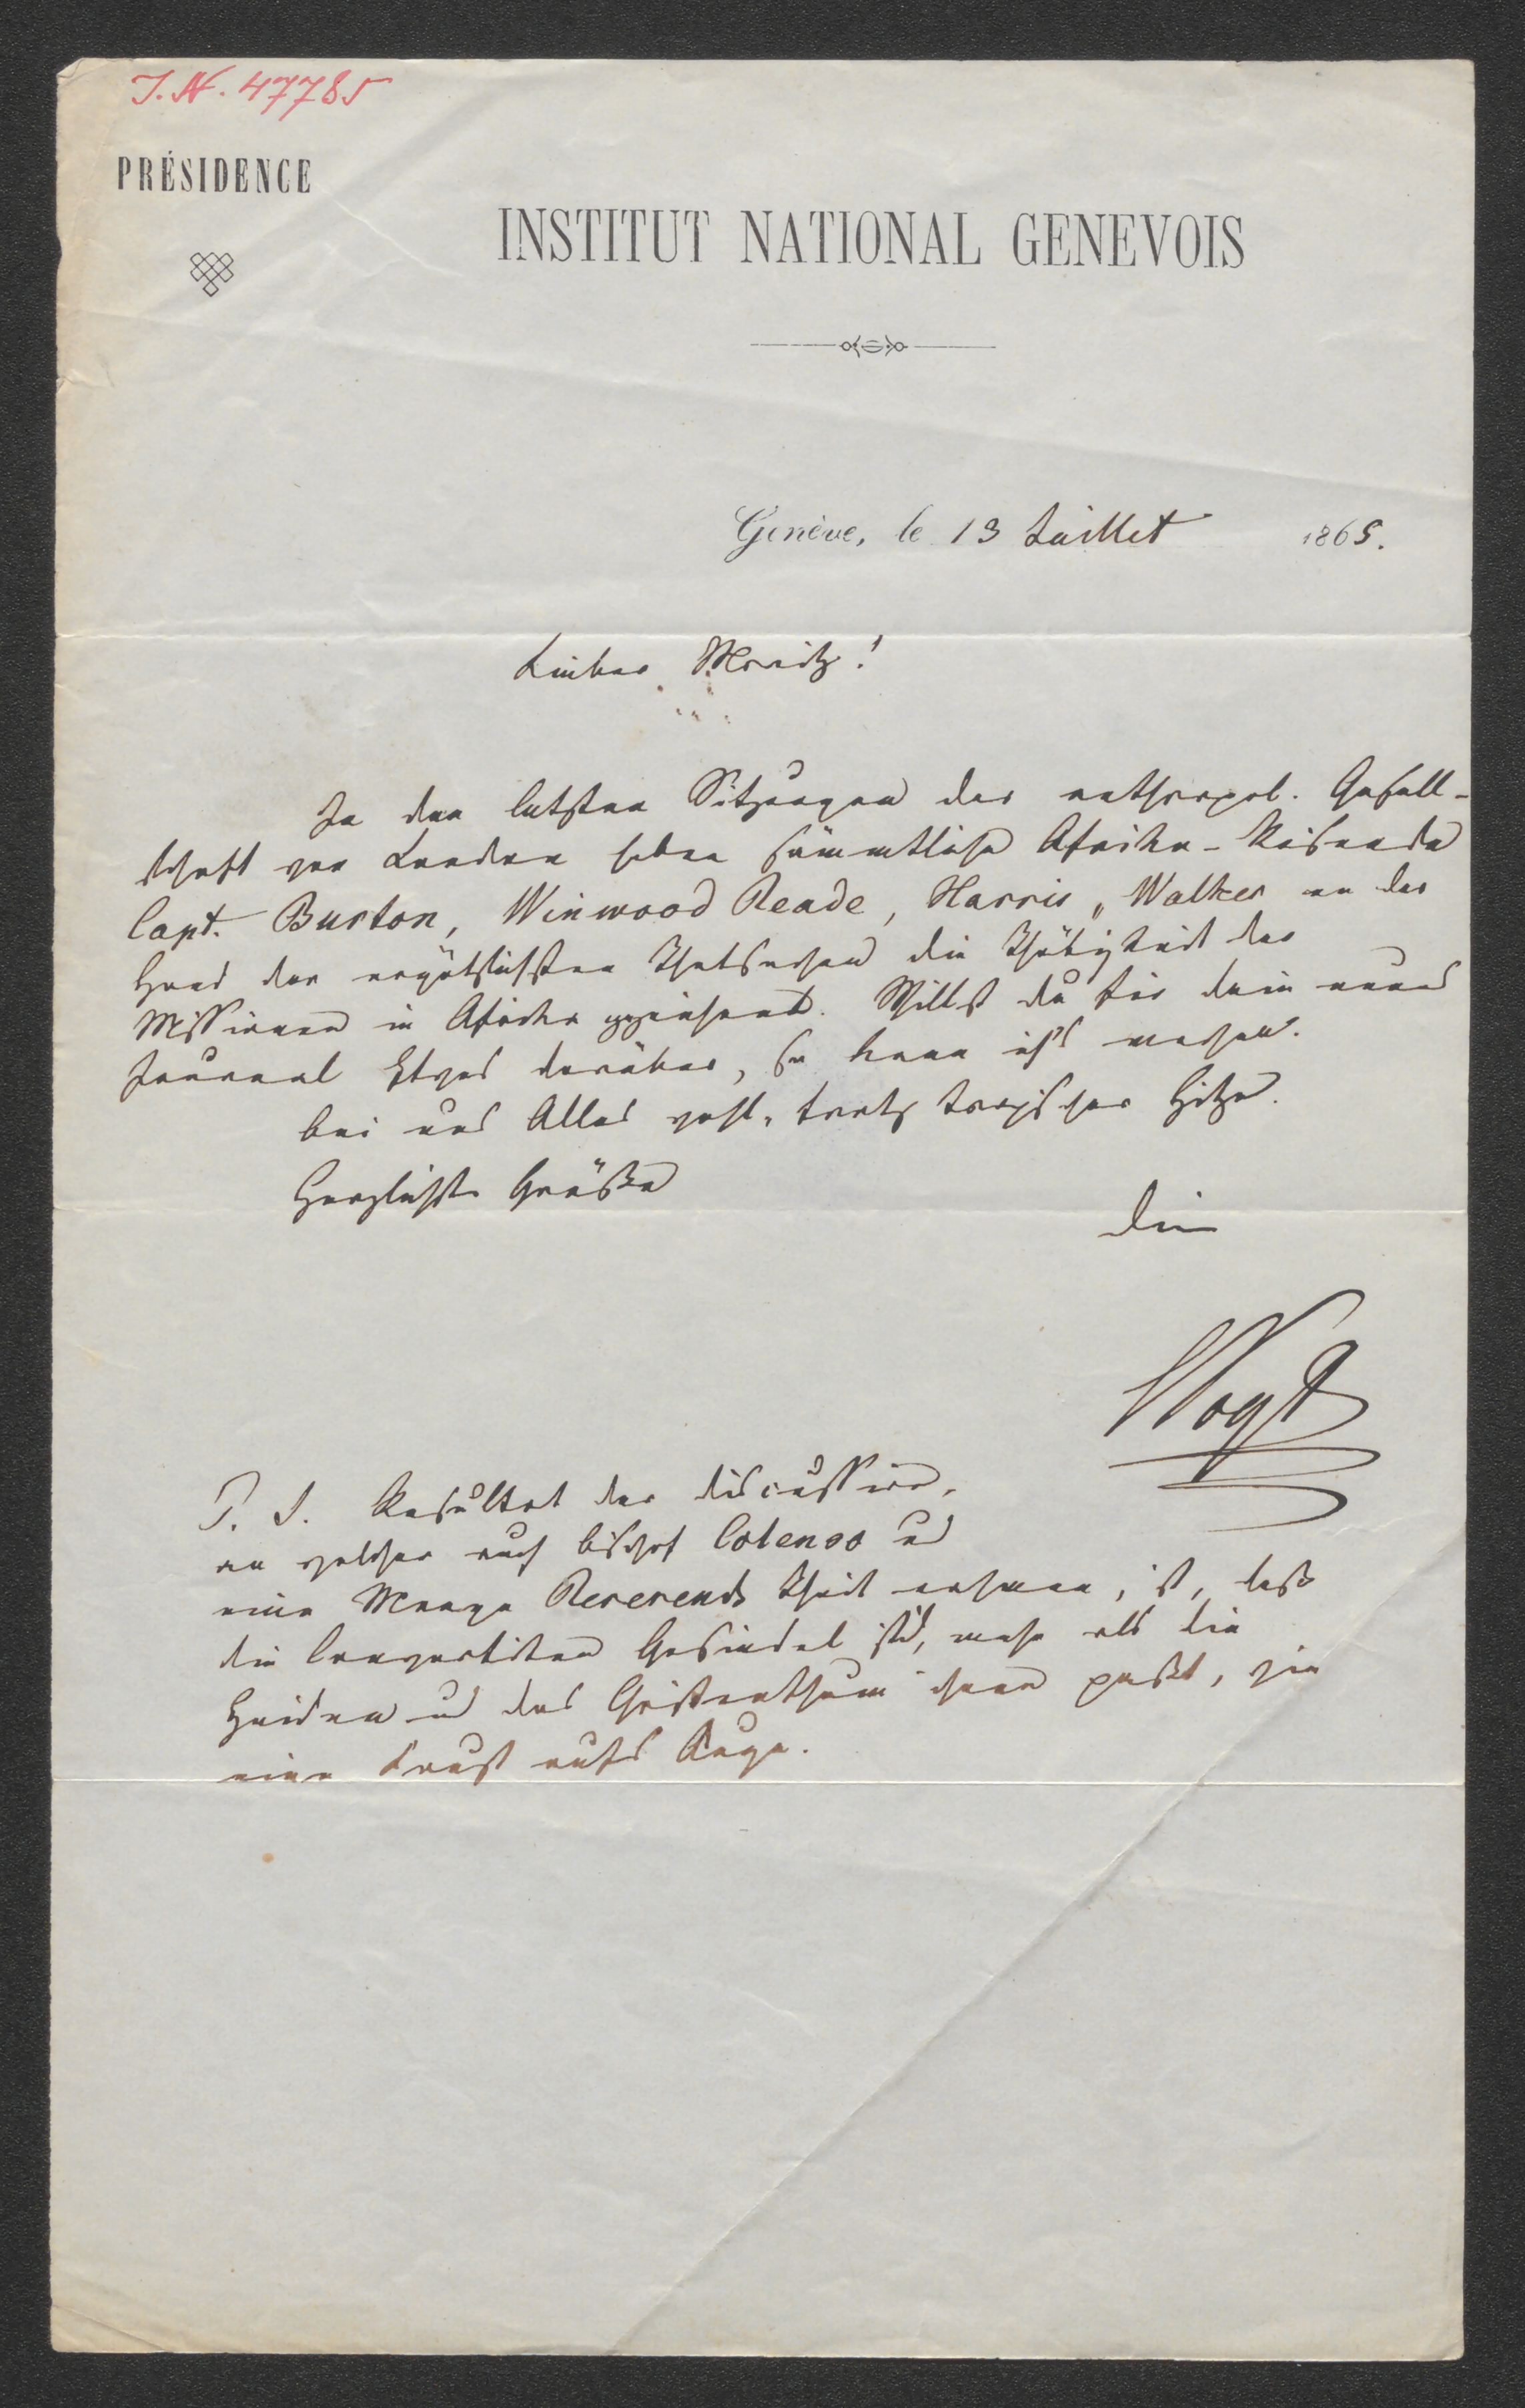 J. N. 47785
PRÉSIDENCE
INSTITUT NATIONAL GENEVOIS
Genève, le 13 Juillet 1865.
Lieber Moritz!
In den letzten Sitzungen der anthropol. Gesell-
schaft von London haben sämmtliche Afrika-Reisende
Capt. Burton, Winwood Reade, Harris, Walker an der
Hand der ergötzlichsten Thatsachen die Thätigkeit der
Missionen in Afrika. Willst du für dein neues
Journal Etwas darüber, so kann ich's machen.
Bei uns Alles wohl, trotz tropischer Hitze.
Herzlichste Grüße
Dein
CVogt
P. S. Resultat der Discussion,
an welcher auch Bischof Colenso und
eine Menge Reverends Theil nahmen, ist, daß
die Convertiten Gesindel sind, mehr als die
Heiden und das Christenthum ihnen paßt, wie
eine Faust aufs Auge.